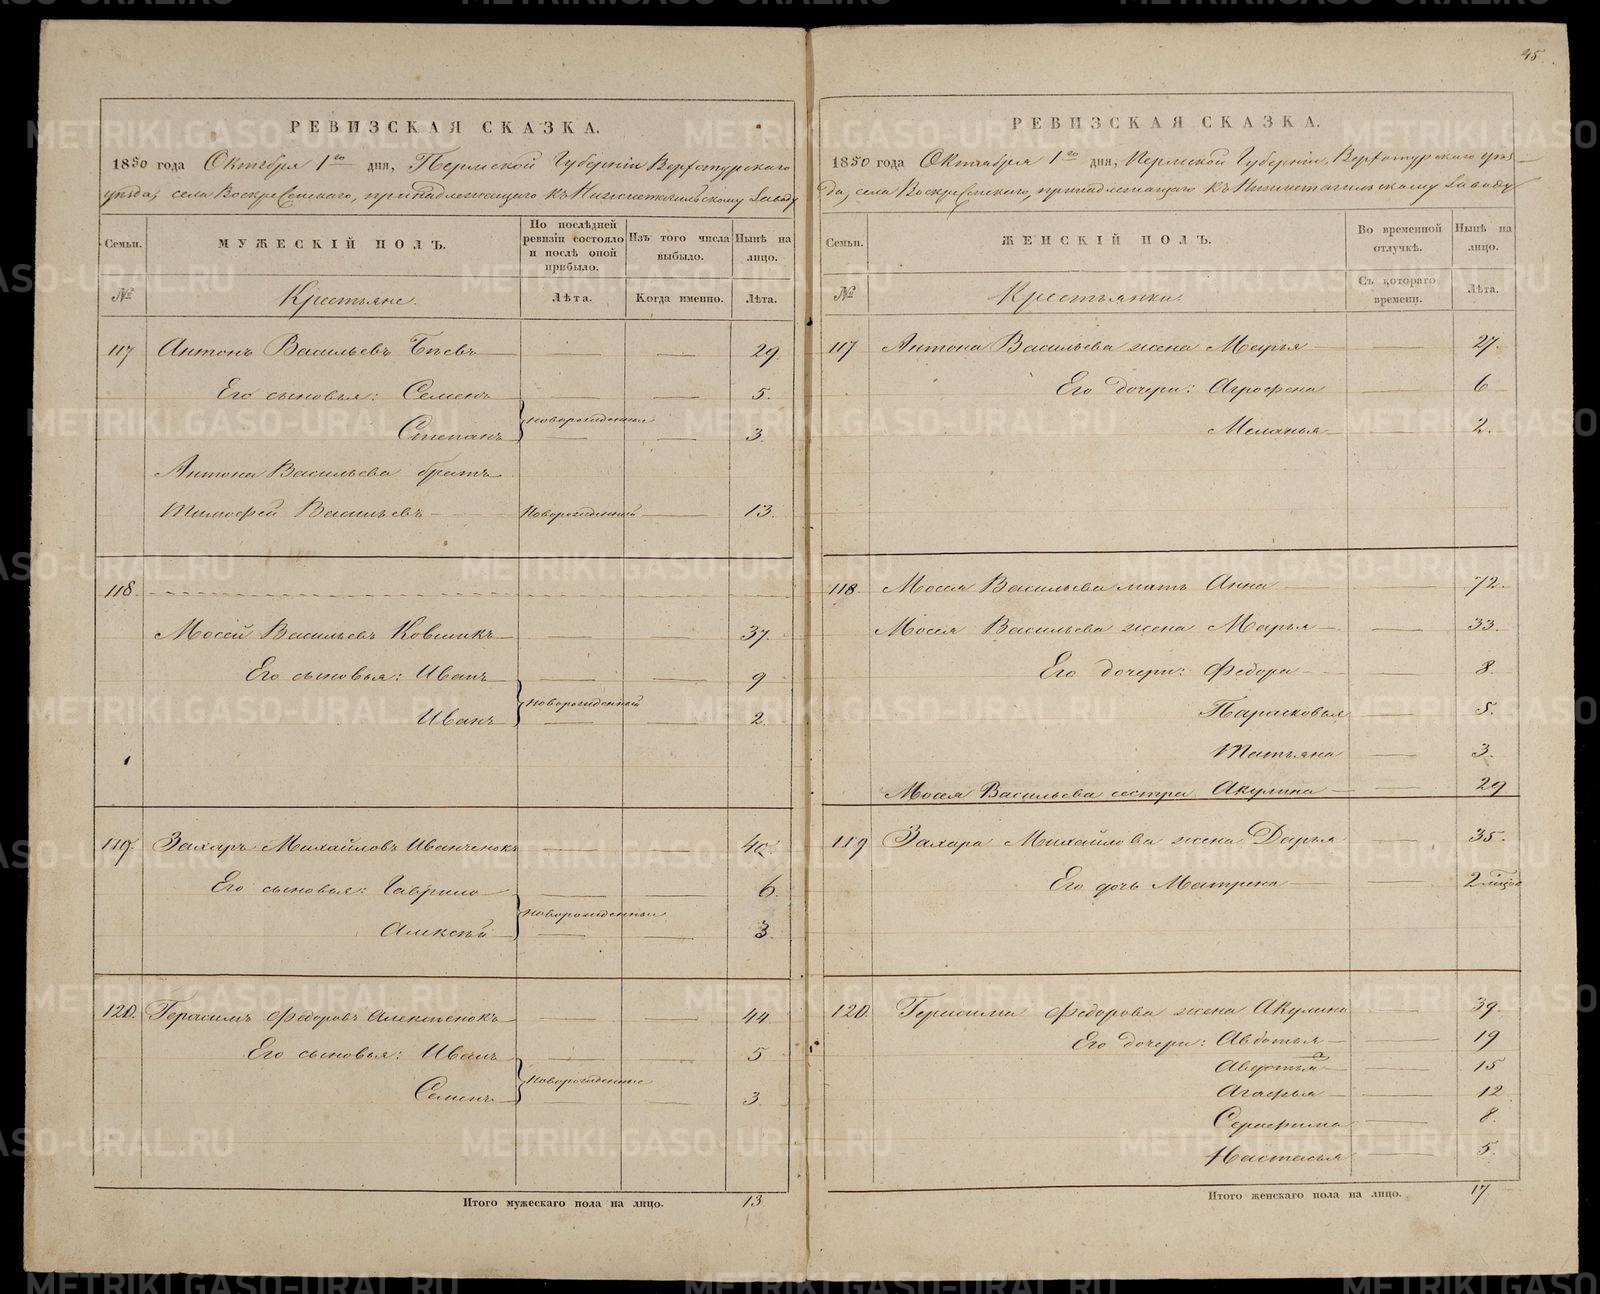 45.
РЕВИЗСКАЯ СКАЗКА.
1850 года Октября 1го дня, Пермской Губерніи Верхотурского
уѣзда, села Воскресенскаго, принадлежащаго къ Нижнетагильскому Заводу
Семьи.
МУЖЕСКІЙ ПОЛЪ.
По послѣдней ревизіи состояло и послѣ оной прибыло.
Изъ того числа выбыло.
Нынѣ на лицо.
№
Крестьяне.
Лѣта.
Когда именно.
Лѣта.
117 Антонъ Васильевъ 29
Его сыновья: Семенъ 5.
новорожденные
Степанъ 3.
Антона Васильева братъ
Тимофей Васильевъ Новорожденный 13.
118.
Мосей Васильевъ Ковшикъ 37.
Его сыновья: Иванъ 9
новорожденный
Иванъ 2
119 Захаръ Михайловъ Иванченокъ 40.
Его сыновья: Гаврило 6.
новорожденные
Алексѣй 3.
120. Герасимъ Федоровъ Алексѣнокъ 44
Его сыновья: Иванъ 5
Новорожденные
Семенъ 3
Итого мужескаго пола на лицо. 13
РЕВИЗСКАЯ СКАЗКА.
1850 года Октября 1го дня, Пермской Губерніи, Верхотурскаго уѣз-
да, села Воскресенскаго, принадлежащаго къ Нижнетагильскому Заводу
Семьи.
ЖЕНСКІЙ ПОЛЪ.
Во временной отлучкѣ.
Нынѣ на лицо.
№
Крестьянки.
Съ котораго времени.
Лѣта.
117 Антона Васильева жена Марья 27.
Его дочери: Агрофена 6
Меланья 2.
118. Мосея Васильева мать Анна 72.
Мосея Васильева жена Марья 33.
Его дочери: Федора 8.
Парасковья 5.
Татьяна 3.
Мосея Васильева сестра Акулина 29
119 Захара Михайлова жена Дарья 35.
Его дочь Матрена 2
120. Герасима Федорова жена Акулина 39.
Его дочери: Авдотья 19
Авдотья 2я 15
Агафья 12
Серафима 8.
Настасья 5.
Итого женскаго пола на лицо. 17
METRIKI.GASO-URAL.RU